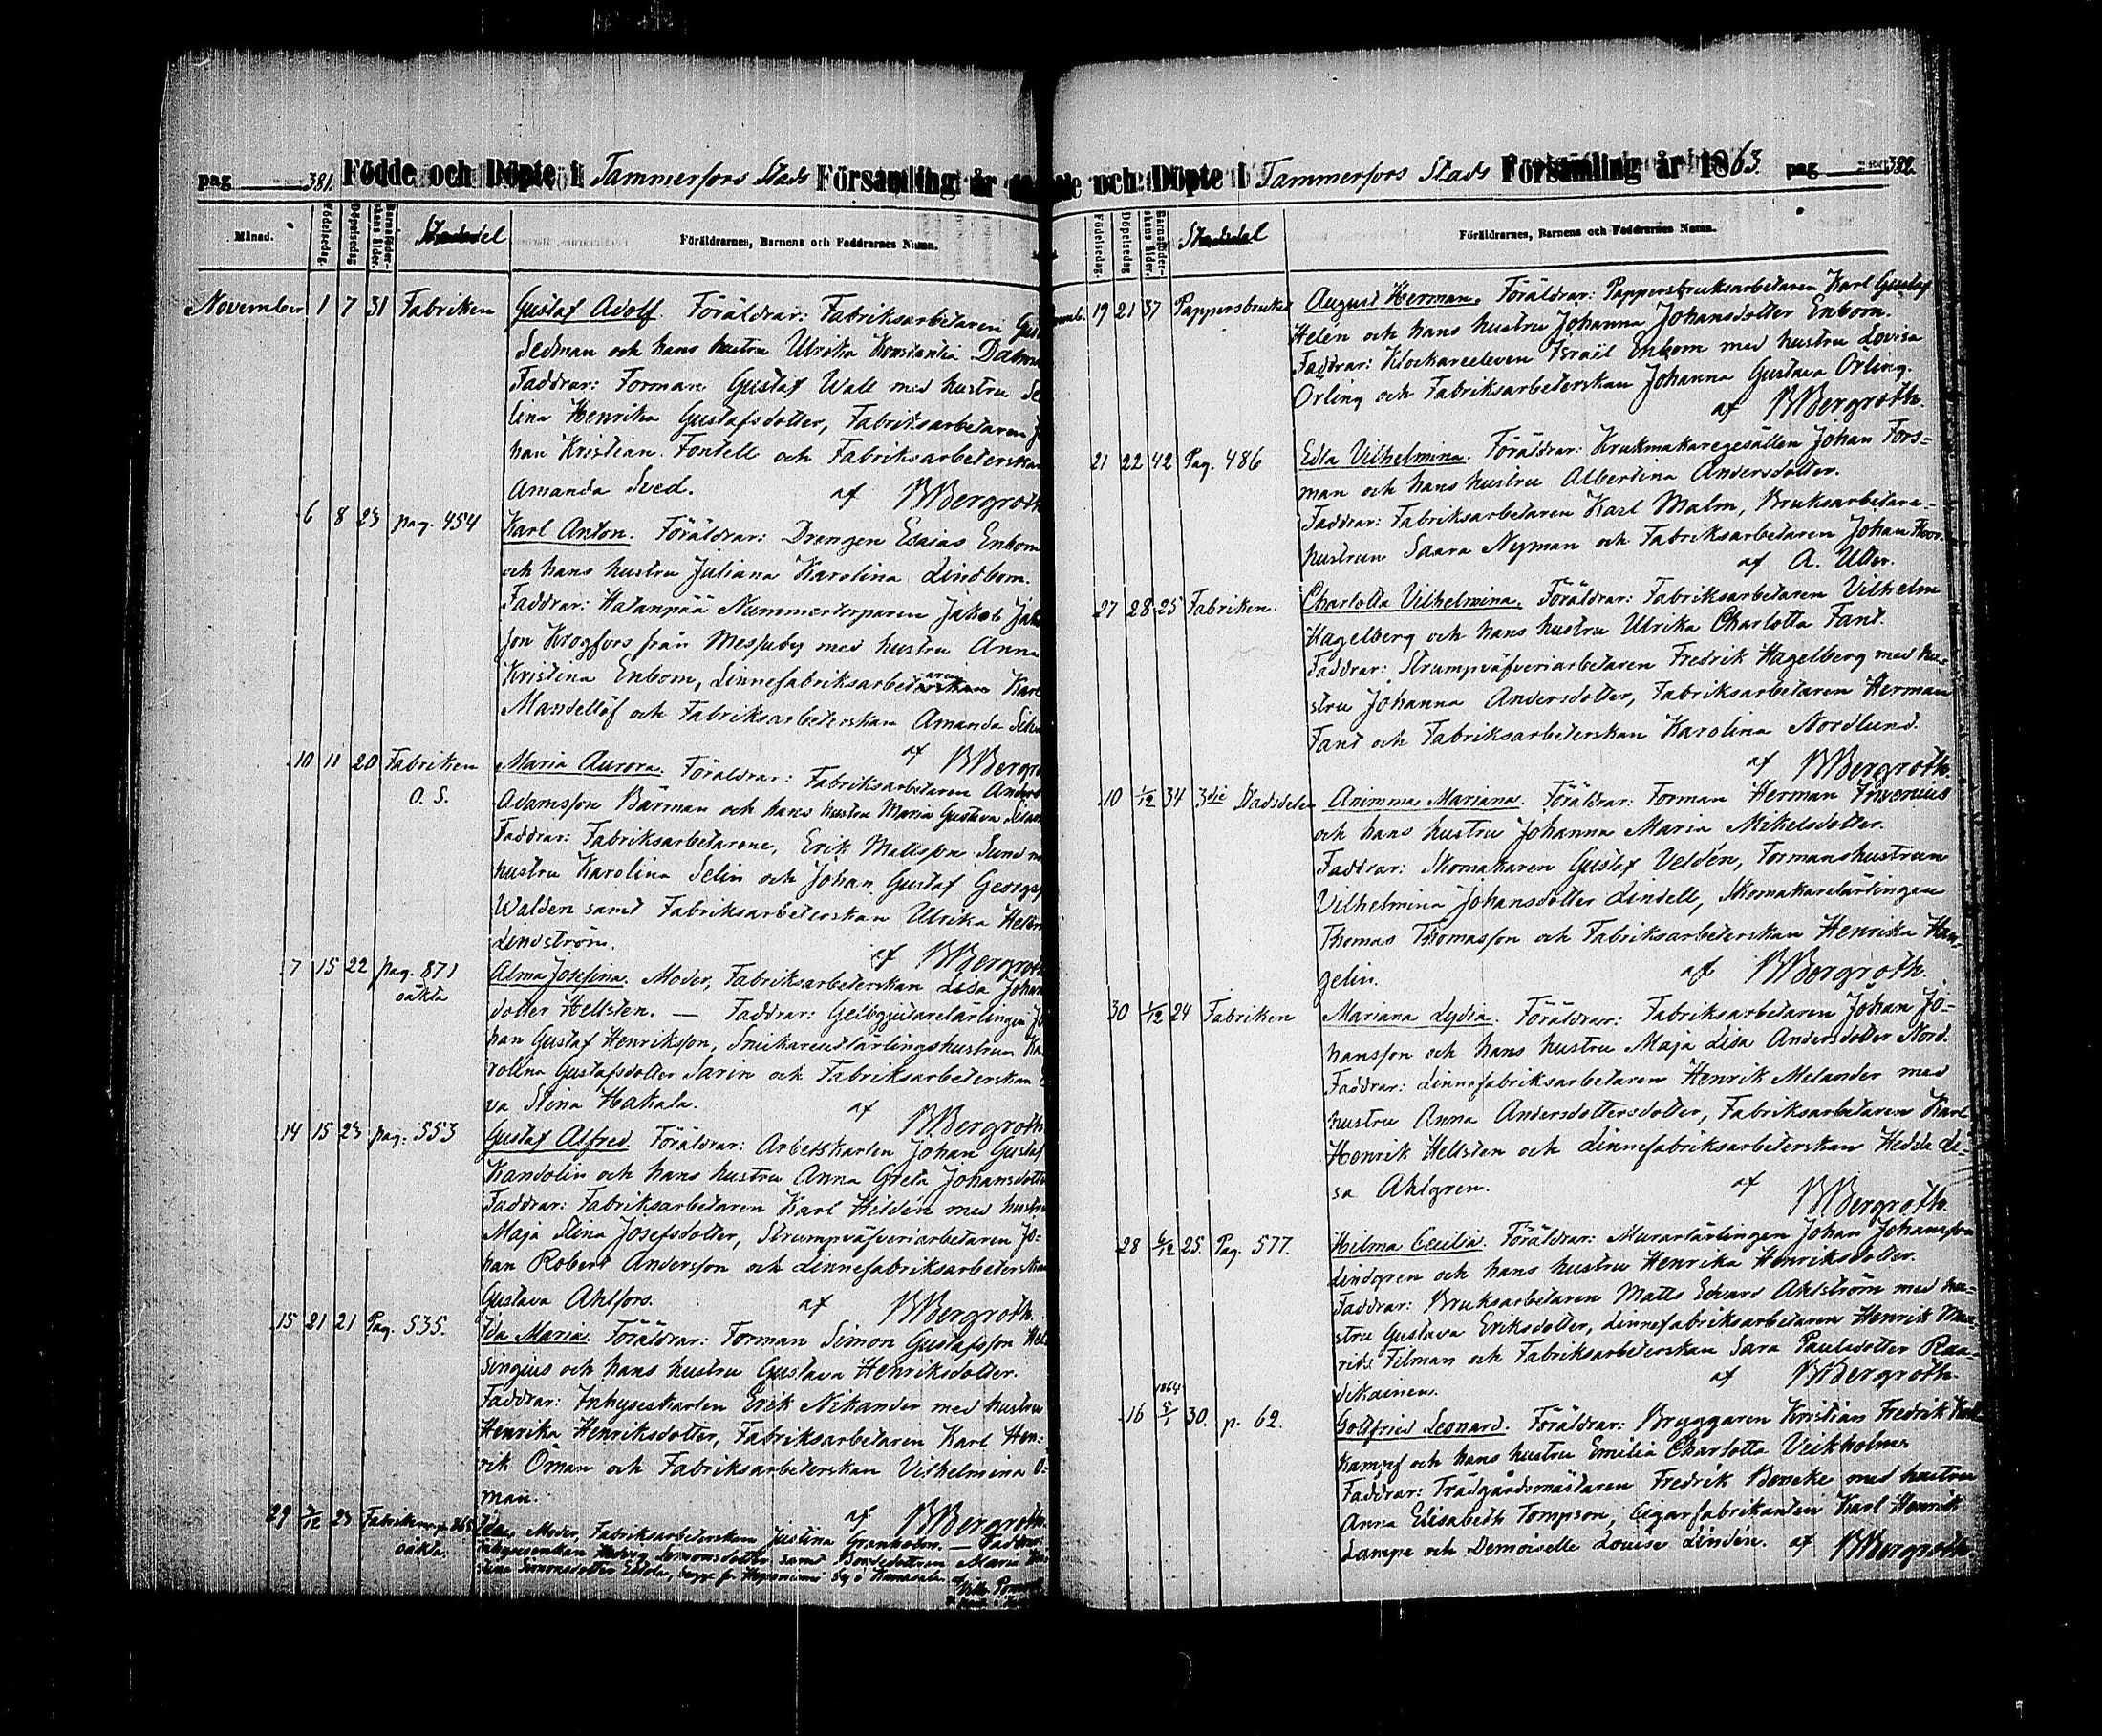 pag 381. Födde och Döpte i Tammerfors Stads Församling år
Månad. Födelsedag. Döpelsedag Barnaföderskans ålder. Stadsdel Föräldrarnes, Barnens och Faddrarnes Namn.
November 1 7 31 Fabriken Gustaf Adolf. Föräldrar: Fabriksarbetaren
Sedman och hans hustru Ulrika Konstantia
Faddrar: Forman Gustaf Wall med hustru Se
lina Henrika Gustafsdotter, Fabriksarbetaren
han Kristian Fontell och Fabriksarbeterskan
Amanda Sved. af BBergroth
6 8 23 pag. 454 Karl Anton. Föräldrar: Drengen Esaias Enbom
och hans hustru Juliana Karolina Lindbom.
Faddrar: Hatanpää Nummertorparen Jakob
son Krogfors från Messuby med hustru Anna
Kristina Enbom, Linnefabriksarbetaren Karl
Mandellöf och Fabriksarbeterskan Amanda
af BBergro
10 11 20 Fabriken Maria Aurora. Föräldrar: Fabriksarbetaren Anders
O. S. Adamsson Bärman och hans hustru Maria Gustava
Faddrar: Fabriksarbetarene, Erik Mattsson Sund
hustru Karolina Selin och Johan Gustaf Georgs
Walden samt Fabriksarbeterskan Ulrika
Lindström. af BBergroth
7 15 22 pag. 871 Alma Josefina. Moder, Fabriksarbeterskan Lisa Johan
oäkta dotter Hellsten. — Faddrar: Gelbgjutarelärlingen Jo
han Gustaf Henriksson, Snickarelärlingshustrun Ka
rolina Gustafsdotter Sarin och Fabriksarbeterskan
va Stina Hakala. af BBergroth
14 15 23 pag. 553 Gustaf Alfred. Föräldrar: Arbetskarlen Johan Gustaf
Kandolin och hans hustru Anna Greta Johansdotter
Faddrar: Fabriksarbetaren Karl Hildén med hustru
Maja Stina Josefsdotter, Strumpväfveriarbetaren Jo-
han Robert Andersson och Linnefabriksarbeterskan
Gustava Ahlfors. af BBergroth.
15 21 21 Pag. 535. Ida Maria. Föräldrar: Forman Simon Gustafsson Hel
singius och hans hustru Gustava Henriksdotter.
Faddrar: Inhyseskarlen Erik Nikander med hustru
Henrika Henriksdotter, Fabriksarbetaren Karl Hen-
rik Öman och Fabriksarbeterskan Vilhelmina Ö-
man. af BBergroth.
29 /12 23 Fabriken Ida. Moder, Fabriksarbeterskan Justina Granholm. — Faddrar:
oäkta Inhysesenkan samt Bondedottren Maria
Simonsdotter

och Döpte i Tammerfors Stads Församling år 1863. pag 382.
Födelsedag. Döpelsedag Barnaföderskans ålder. Stadsdel Föräldrarnes, Barnens och Faddrarnes Namn.
19 21 37 Pappersbruket August Herman. Föräldrar: Pappersbruksarbetaren Karl Gustaf
Helén och hans hustru Johanna Johansdotter Enbom.
Faddrar: Klockareeleven Israël Enbom med hustru Lovisa
Örling och Fabriksarbeterskan Johanna Gustava Örling.
af BBergroth.
21 22 42 Pag. 486 Edla Vilhelmina. Föräldrar: Krukmakaregesällen Johan Fors-
man och hans hustru Albertina Andersdotter.
Faddrar: Fabriksarbetaren Karl Malm, Bruksarbetare-
hustrun Saara Nyman och Fabriksarbetaren Johan
af A. Uller.
27 28 25 Fabriken. Charlotta Vilhelmina. Föräldrar: Fabriksarbetaren Vilhelm
Hagelberg och hans hustru Ulrika Charlotta Fant.
Faddrar: Strumpväfveriarbetaren Fredrik Hagelberg med hu-
stru Johanna Andersdotter, Fabriksarbetaren Herman
Fant och Fabriksarbeterskan Karolina Nordlund.
af BBergroth.
10 1/12 34 3die Stadsdelen Animma Mariana. Föräldrar: Forman Herman Invenius
och hans hustru Johanna Maria Mikelsdotter.
Faddrar: Skomakaren Gustaf Veldén, Formanshustrun
Vilhelmina Johansdotter Lindell, Skomakarelärlingen
Thomas Thomasson och Fabriksarbeterskan Henrika Han-
gelin. af BBergroth.
30 1/12 24 Fabriken Mariana Lydia. Föräldrar: Fabriksarbetaren Johan Jo-
hansson och hans hustru Maja Lisa Andersdotter Nord.
Faddrar: Linnefabriksarbetaren Henrik Melander med
hustru Anna Andersdottersdotter, Fabriksarbetaren Karl
Henrik Hellsten och Linnefabriksarbeterskan Hedda Li-
sa Ahlgren. af BBergroth.
28 6/12 25. Pag. 577. Hilma Cecilia. Föräldrar: Murarlärlingen Johan Johansson
Lindgren och hans hustru Henrika Henriksdotter.
Faddrar: Bruksarbetaren Matts Edvard Ahlström med hu-
stru Gustava Eriksdotter, Linnefabriksarbetaren Henrik
Tilman och Fabriksarbeterskan Sara Paulsdotter Raa-
dikainen. af BBergroth.
1864
16 5/1 30. p. 62. Gottfried Leonard. Föräldrar: Bryggaren Kristian Fredrik
kampf och hans hustru Emilia Charlotta Veikholm
Faddrar: Trädgårdsmästaren Fredrik Beneke med hustru
Anna Elisabeth Tompson, Cigarfabrikanten Karl Henrik
Lampe och Demoiselle Louise Lindén. af BBergroth.